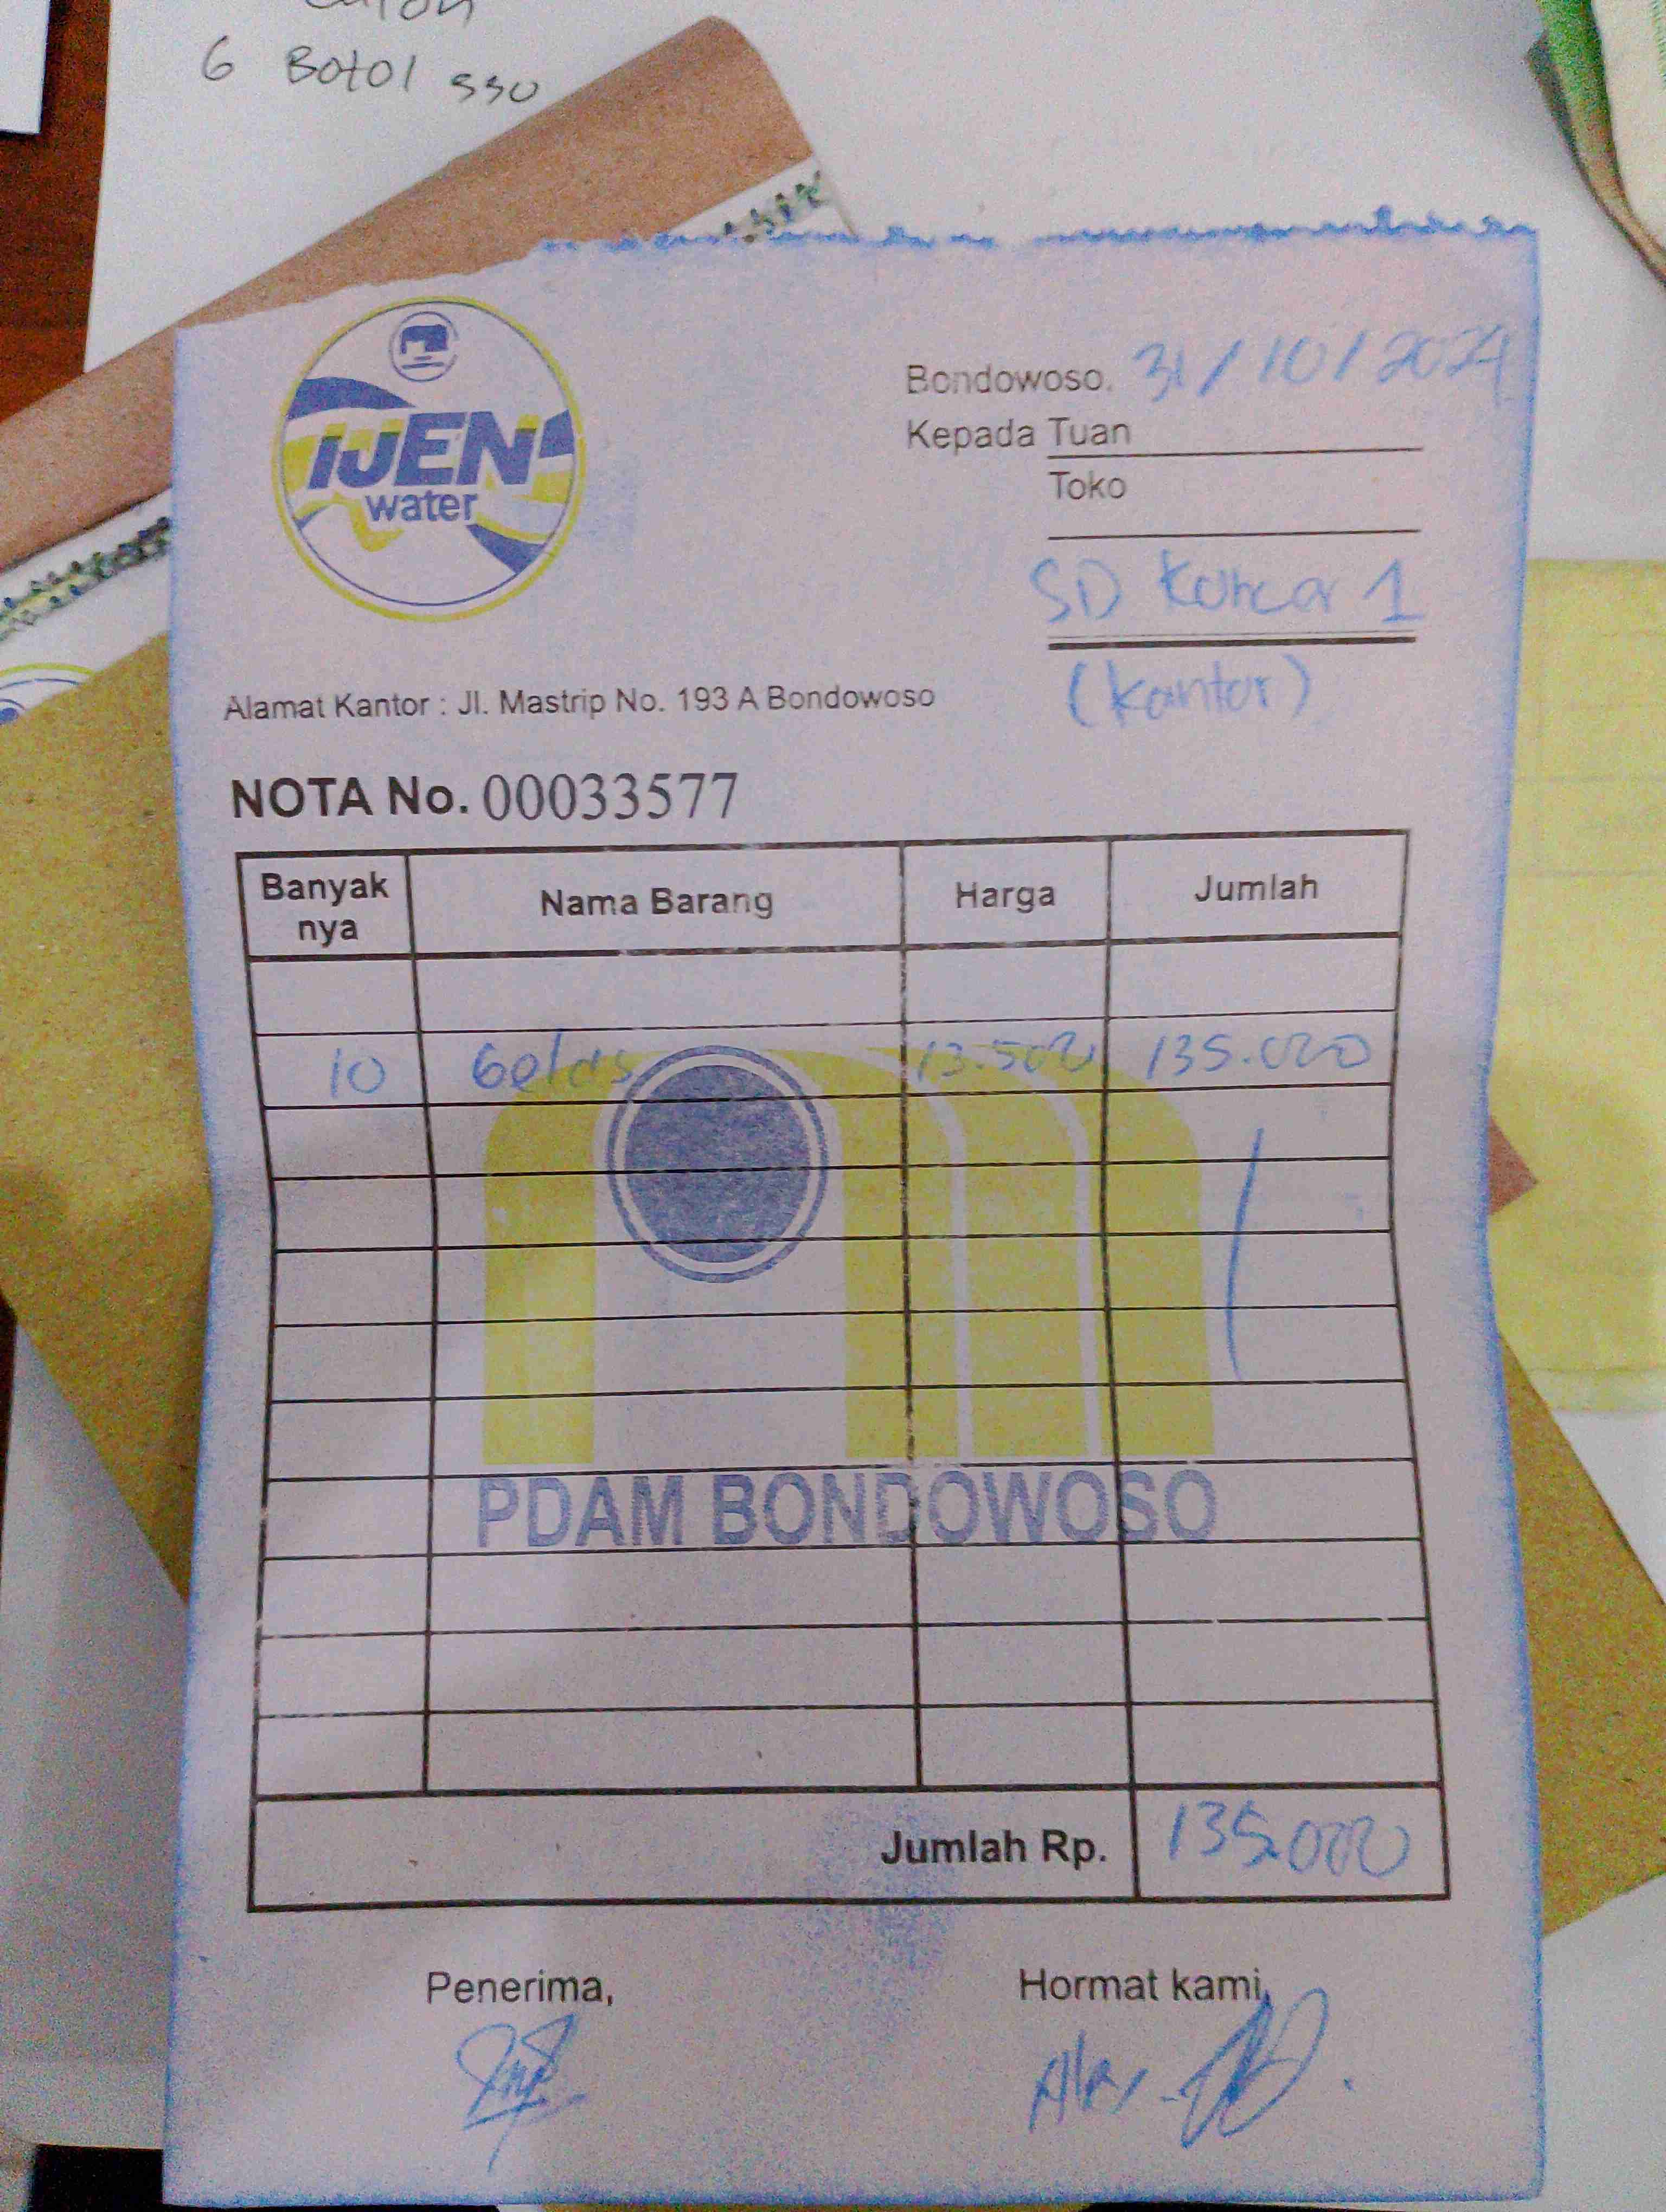 6 Botol 550
IJEN
water
Bondowoso, 31/10/2024
Kepada Tuan
Toko
SD Koncer 1
(Kantor)
Alamat Kantor : Jl. Mastrip No. 193 A Bondowoso
NOTA No. 00033577
Banyak nya Nama Barang Harga Jumlah
10 Gelas 13.500 135.000
PDAM BONDOWOSO
Jumlah Rp. 135.000
Penerima, Hormat kami,